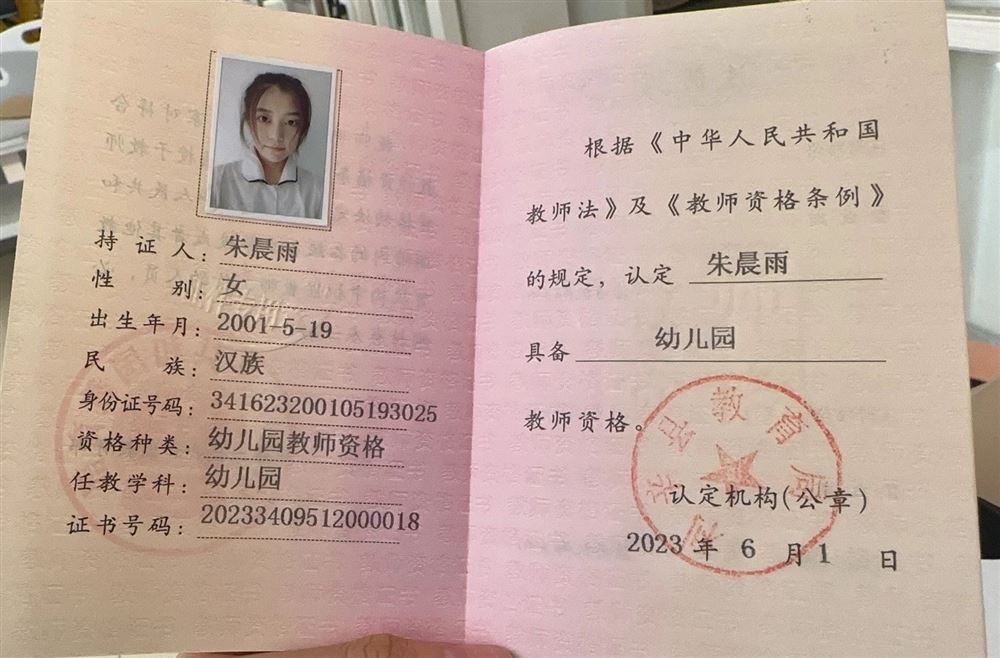 持证人：朱晨雨
性别：女
出生年月：2001-5-19
民族：汉族
身份证号码：341623200105193025
资格种类：幼儿园教师资格
任教学科：幼儿园
证书号码：20233409512000018
根据《中华人民共和国
教师法》及《教师资格条例》
的规定，认定 朱晨雨
具备 幼儿园
教师资格。
利辛县教育局
认定机构(公章)
2023年6月1日